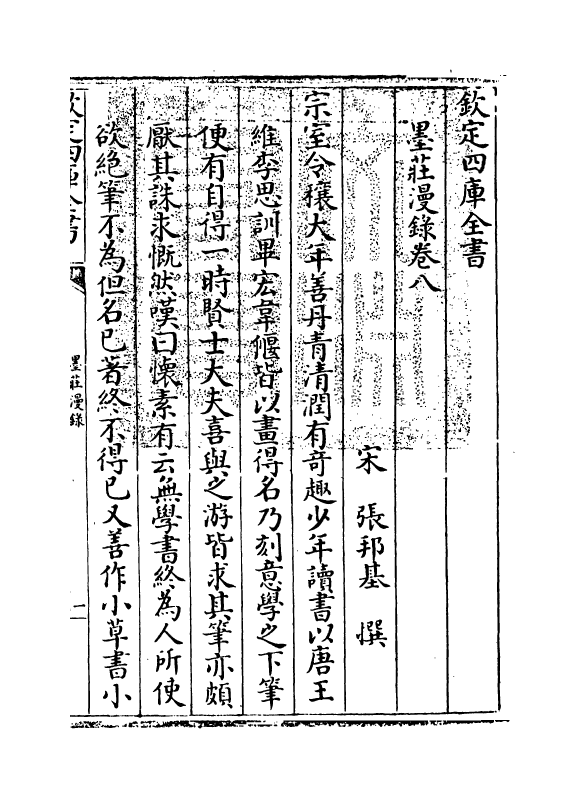 欽定四庫全書
墨莊漫錄卷八
宋 張邦基 撰
宗室令穰大年善丹青清潤有奇趣少年讀書以唐王
維李思訓畢宏韋偃皆以畫得名乃刻意學之下筆
便有自得一時賢士大夫喜與之游皆求其筆亦頗
厭其誅求慨然嘆曰懷素有云無學書終為人所使
欲絶筆不為但名已著終不得已又善作小草書小
欽定四庫全書
墨莊漫錄